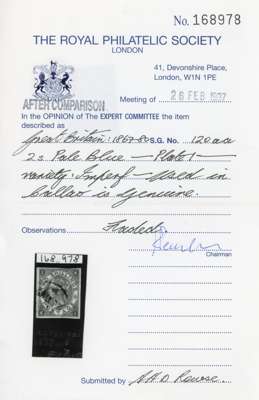 No. 168978
THE ROYAL PHILATELIC SOCIETY
LONDON
41, Devonshire Place,
London, W1N 1PE
AFTER COMPARISON
Meeting of 26 FEB 1997
In the OPINION of The EXPERT COMMITTEE the item
described as
Great Britain: 1867-80 S.G. No. 120aa
2s Pale Blue — Plate 1 —
variety: Imperf — Used in
Callao is genuine.
Observations
Chairman
168 978
Submitted by